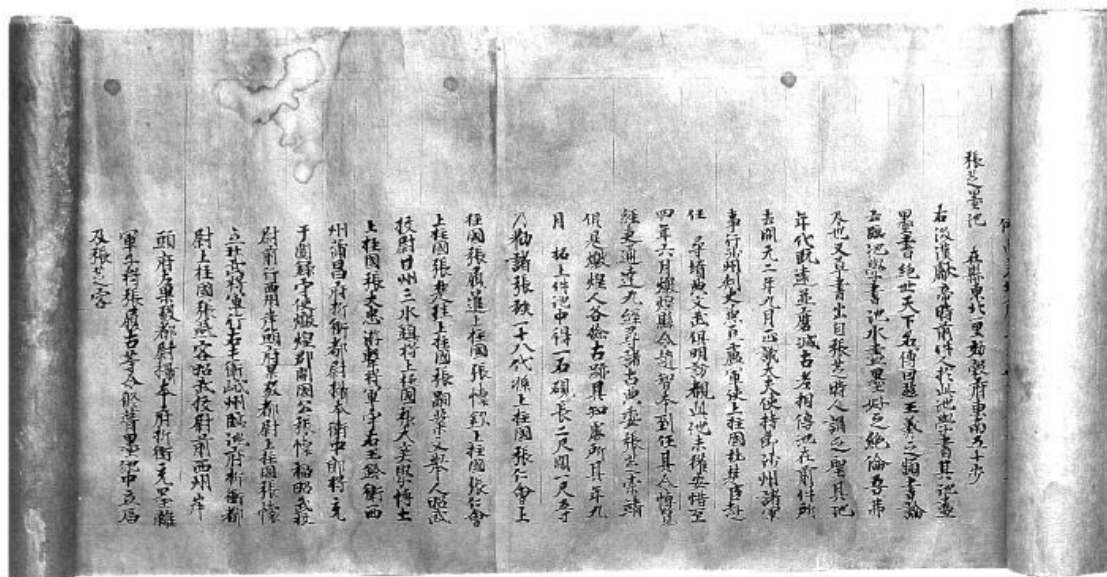 張芝墨池 在縣東北一里効穀府東南五十步
右後漢獻帝時前件人於此池學書其池盡
墨書絕世天下名傳因王羲之顗書論
云臨池學書池水盡墨好之絕倫吾弗
及也又草書出自張芝時人謂之聖其池
年代既遠並磨滅古老相傳池在前件所
去開元二年九月正議大夫使持節沙州諸軍
事行沙州刺史兼豆盧軍使上柱國杜楚臣赴
任尋墳典文武俱明訪觀此池未獲安惜至
四年六月燉煌縣令趙智本到任其令博覽
經史通達九經尋諸古典委張芝索靖
俱是燉煌人各檢古跡具知處所其年九
月拓上件池中得一石硯長二尺闊一尺五寸
乃勸諸張族一十八代孫上柱國張仁會上
柱國張履暹上柱國張懷欽上柱國張仁會
上柱國張楚珪上柱國張嗣業文舉人昭武
校尉甘州三水鎮將上柱國張大爽學博士
上柱國張大忠游擊將軍守右玉鈐衛西
州蒲昌府折衝都尉攝本衛中郎將充
于闐錄守使燉煌郡開國公張懷福昭武校
尉前行西州岸頭府果毅都尉上柱國張懷
立壯武將軍行右屯衛岷州臨洮府折衝都
尉上柱國張燕客昭武校尉前西州岸
頭府左果毅都尉攝本府折衝充墨離
軍子將張履古等令修葺墨池中立廟
及張芝容